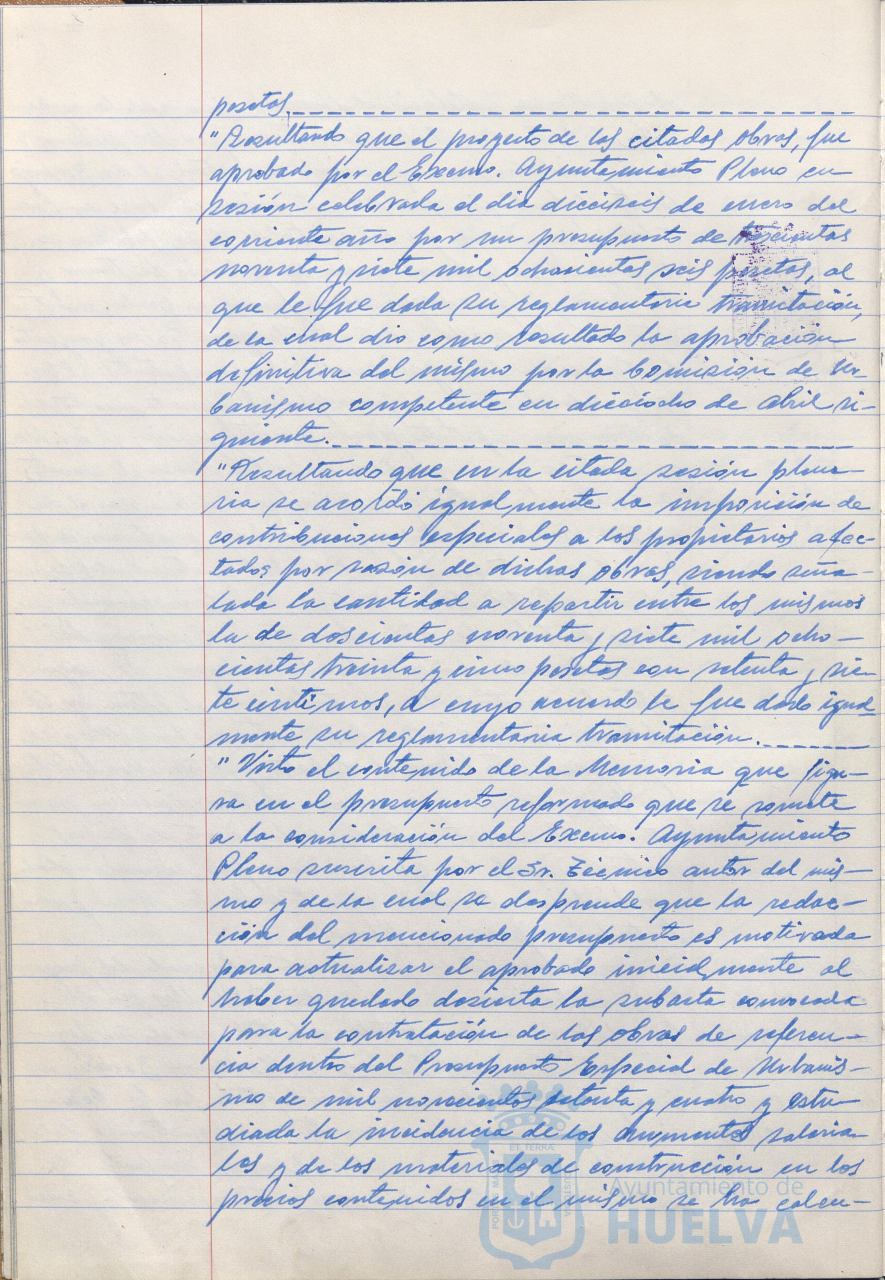 pesetas
"Resultando que el proyecto de las citadas obras, fue
aprobado por el Excmo. Ayuntamiento Pleno en
sesión celebrada el día dieciseis de enero del
corriente año por un presupuesto de
noventa y siete mil ochocientas seis pesetas, al
que le fue dada su reglamentaria tramitación,
de la cual dio como resultado la aprobación
definitiva del mismo por la Comisión de Ur-
banismo competente en dieciocho de abril si-
guiente.
"Resultando que en la citada sesión plena-
ria se acordó igualmente la imposición de
contribuciones especiales a los propietarios afec-
tados por razón de dichas obras, siendo seña-
lada la cantidad a repartir entre los mismos
la de doscientas noventa y siete mil ocho-
cientas treinta y cinco pesetas con setenta y sie-
te céntimos, a cuyo acuerdo le fue dado igual
mente su reglamentaria tramitación.
"Visto el contenido de la Memoria que figu-
ra en el presupuesto reformado que se somete
a la consideración del Excmo. Ayuntamiento
Pleno suscrita por el Sr. Técnico autor del mis-
mo y de la cual se desprende que la redac-
ción del mencionado presupuesto es motivada
para actualizar el aprobado inicialmente al
haber quedado desierta la subasta convocada
para la contratación de las obras de referen-
cia dentro del Presupuesto Especial de Urbanis-
mo de mil novecientos setenta y cuatro y estu-
diada la incidencia de los aumentos salaria-
les y de los materiales de construcción en los
precios contenidos en el mismo se ha calcu-
Ayuntamiento de
HUELVA